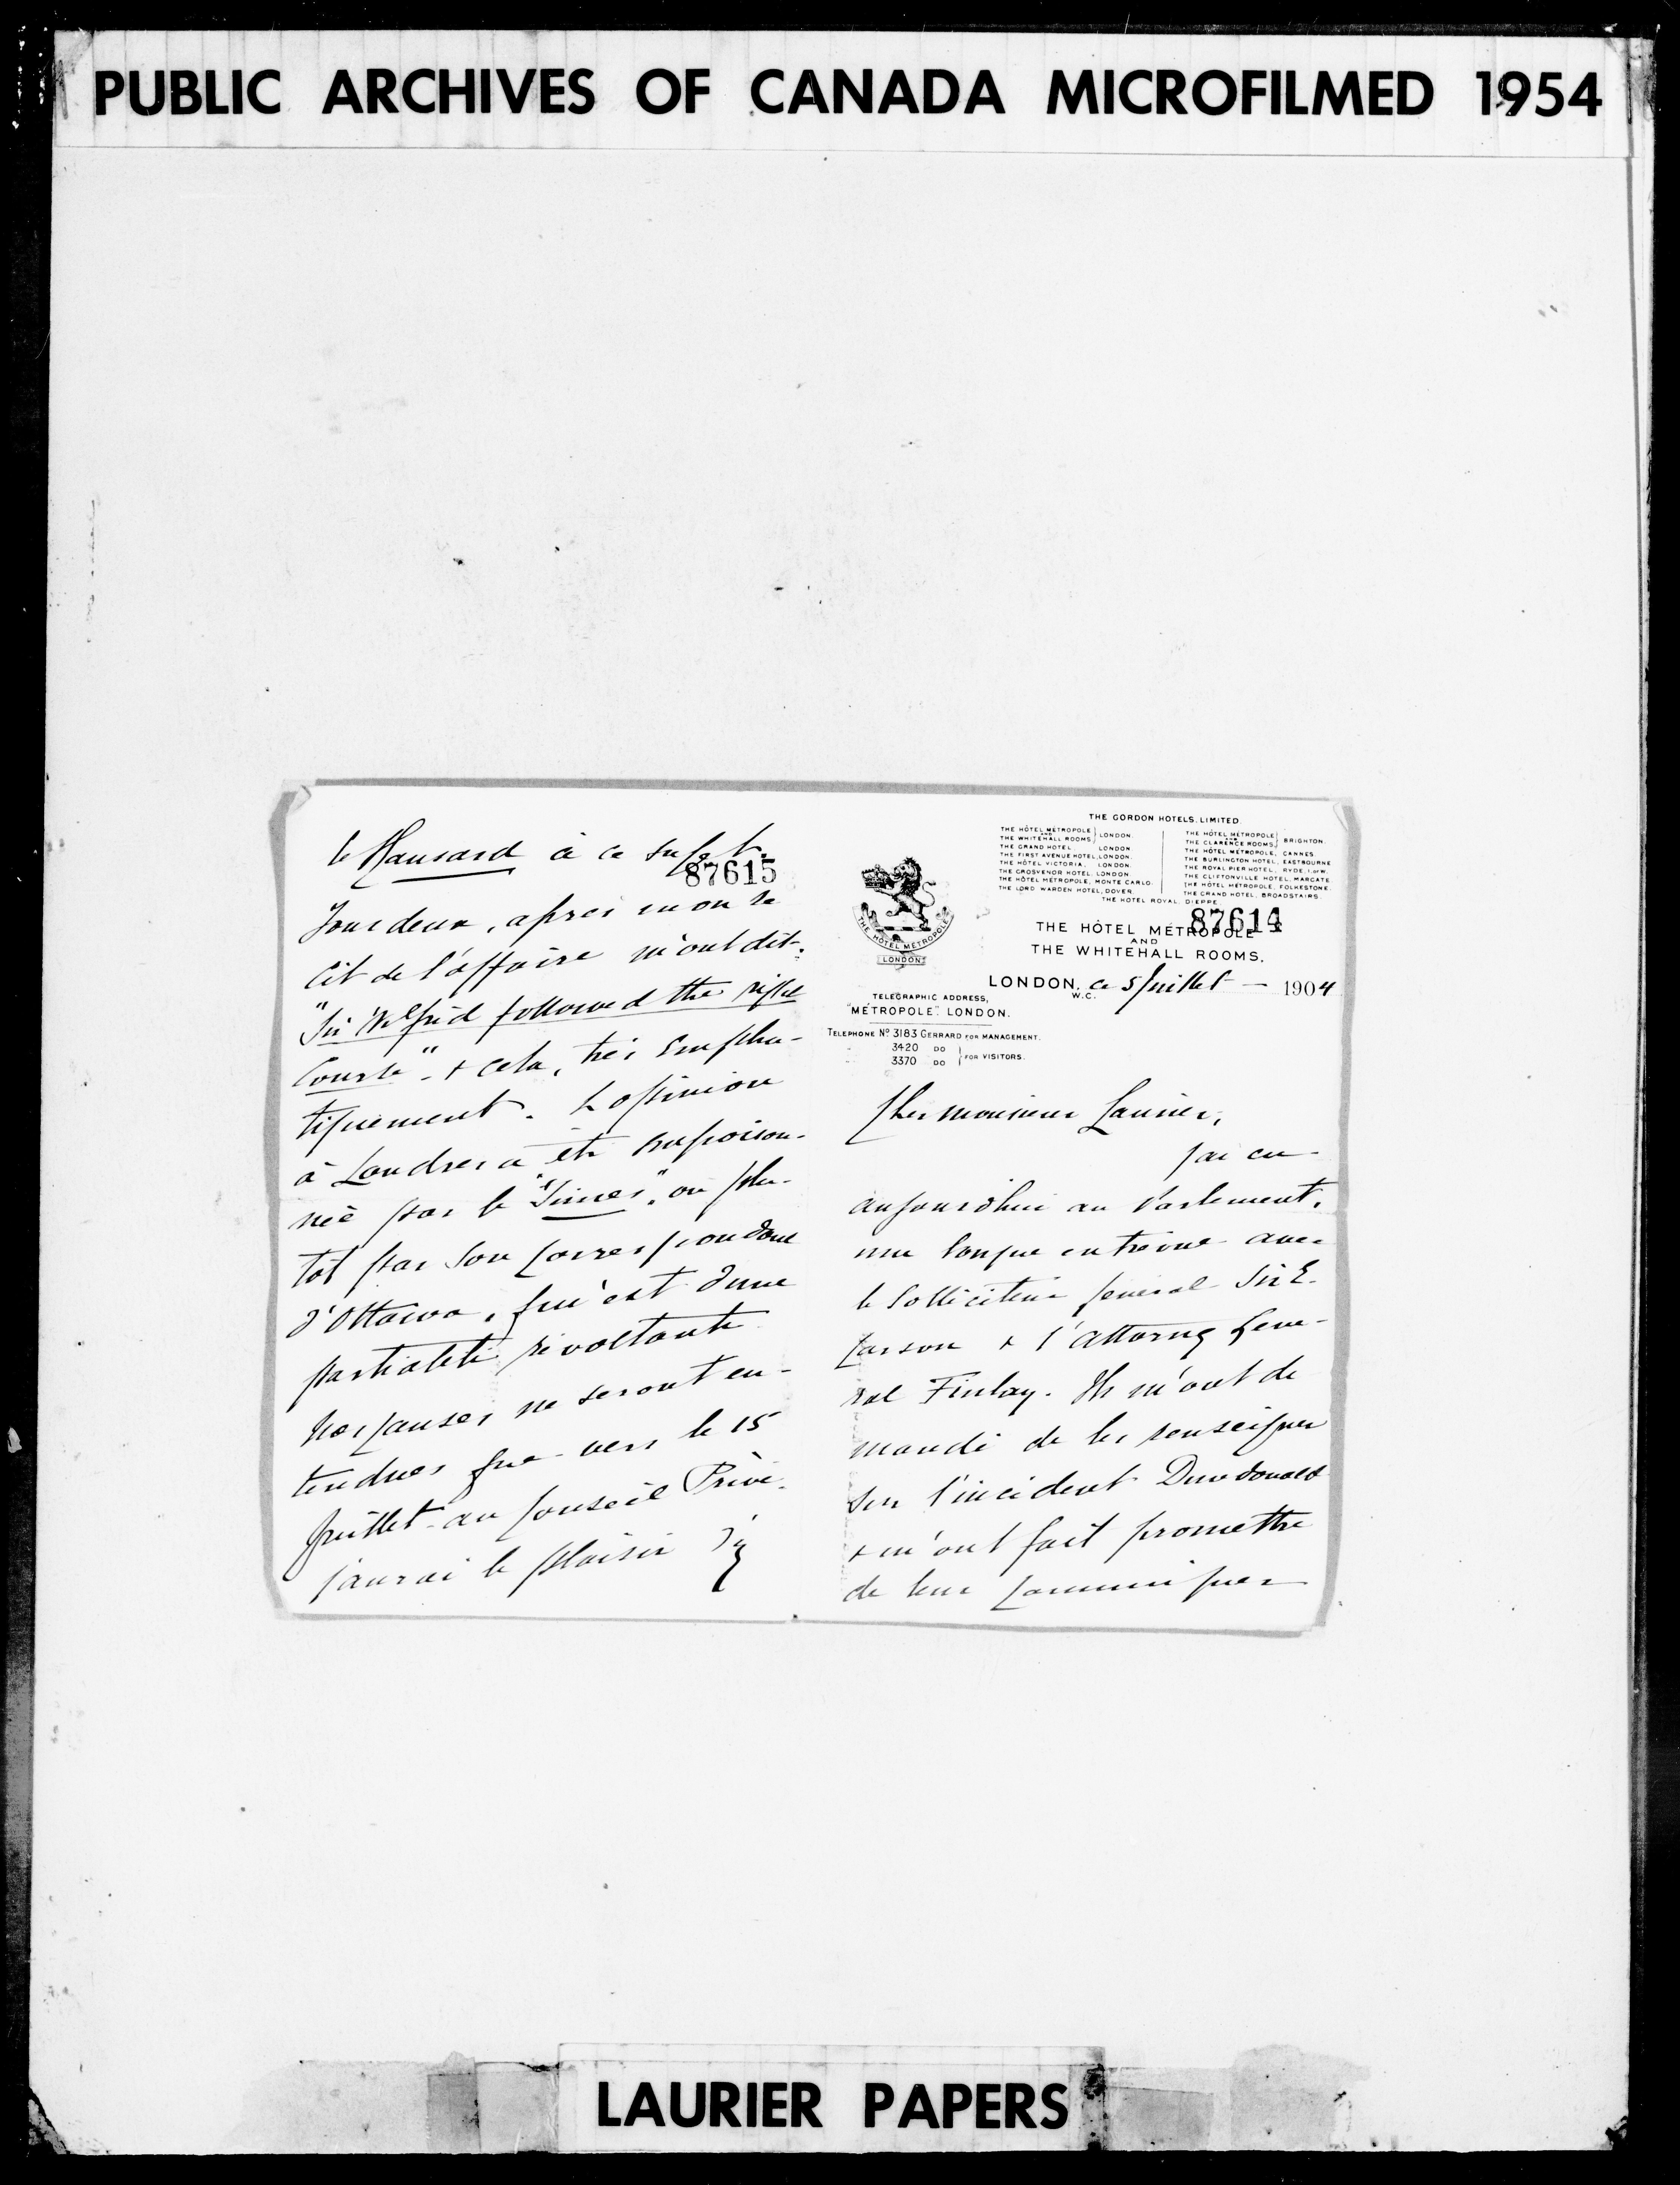 PUBLIC ARCHIVES OF CANADA MICROFILMED 1954
THE GORDON HOTELS, LIMITED.
THE HÔTEL MÉTROPOLE
AND
THE WHITEHALL ROOMS, } LONDON.
THE GRAND HOTEL, LONDON.
THE FIRST AVENUE HOTEL, LONDON.
THE HÔTEL VICTORIA, LONDON.
THE GROSVENOR HOTEL, LONDON.
THE HÔTEL MÉTROPOLE, MONTE CARLO.
THE LORD WARDEN HOTEL, DOVER.
THE HÔTEL MÉTROPOLE
AND
THE CLARENCE ROOMS, } BRIGHTON.
THE HÔTEL MÉTROPOLE, CANNES.
THE BURLINGTON HOTEL, EASTBOURNE
THE ROYAL PIER HOTEL, RYDE, I.OF W.
THE CLIFTONVILLE HOTEL, MARGATE.
THE HÔTEL MÉTROPOLE, FOLKESTONE.
THE GRAND HOTEL, BROADSTAIRS.
THE HOTEL ROYAL DIEPPE
87614
THE HÔTEL MÉTROPOLE
LONDON
THE HÔTEL MÉTROPOLE
AND
THE WHITEHALL ROOMS.
LONDON, ce 5 Juillet – 1904
W.C.
TELEGRAPHIC ADDRESS,
"METROPOLE". LONDON.
TELEPHONE Nº 3183 GERRARD FOR MANAGEMENT.
3420 DO
3370 DO } FOR VISITORS.
Cher monsieur Laurier,
j'ai eu
aujourd'hui au Parlement,
une longue entrevue avec
le Solliciteur general Sir E.
Carson & l'attorney Gene-
ral Finlay. Ils m'ont de
mandé de les renseigner
sur l'incident Dundonald
& m'ont fait promettre
de leur communiquer
le Hansard à ce sujet.
87615
Tous deux, après mon re
cit de l'affaire m'ont dit:
"Sir Wilfrid followed the right
Course" – & cela, très empha-
tiquement. L'opinion
à Londres a été empoison-
née par le "Times", ou plu-
tot par son correspondant
d'Ottawa, qui est d'une
partialité révoltante
Nos causes ne seront en-
tendues que vers le 15
Juillet au Conseil Privé.
j'aurai le plaisir d'y
LAURIER PAPERS